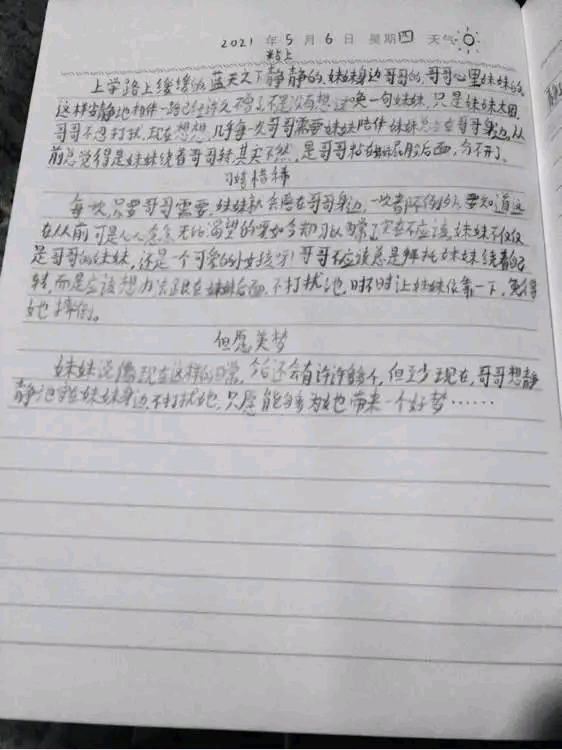 2021 年 5 月 6 日 星期四 天气
粘上
上学路上缓缓的,蓝天之下静静的,妹妹身边哥哥的,哥哥心里妹妹的,
这样安静地相伴一路已经许久,不是没有想过唤一句妹妹,只是妹妹太困,
哥哥不忍打扰,现在想想,几乎每一次哥哥需要妹妹陪伴妹妹总会在哥哥身边,从
前总觉得是妹妹绕着哥哥转,其实不然,是哥哥粘在妹妹屁股后面,分不开了。
习惯惜稀
每一次,只要哥哥需要,妹妹就会陪在哥哥身边,一次都不例外,要知道这
在从前可是人人念念无比渴望的,要如今却习以为常了,实在不应该,妹妹不仅仅
是哥哥的妹妹,还是一个可爱的小女孩呀!哥哥不应该总是拜托妹妹绕着自己
转,而是应该想办法跟在妹妹后面,不打扰她,时不时让妹妹依靠一下,免得
她摔倒。
但愿美梦
妹妹说像现在这样的日常,今后还会有许许多多个,但至少现在,哥哥想静
静地守在妹妹身边,不打扰她,只愿能够为她带来一个好梦……